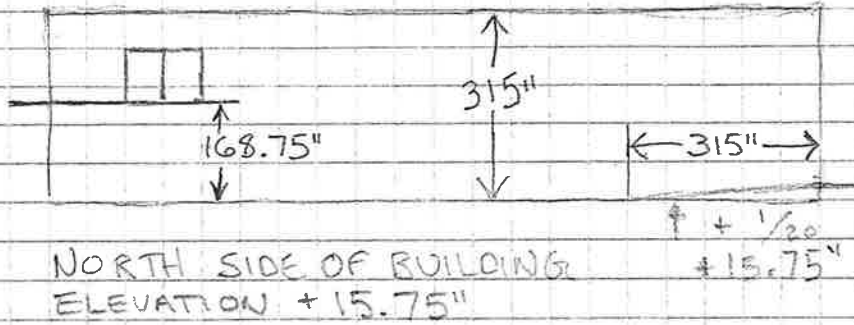 315"
168.75"
315"
+ 1/20
+15.75"
NORTH SIDE OF BUILDING
ELEVATION +15.75"